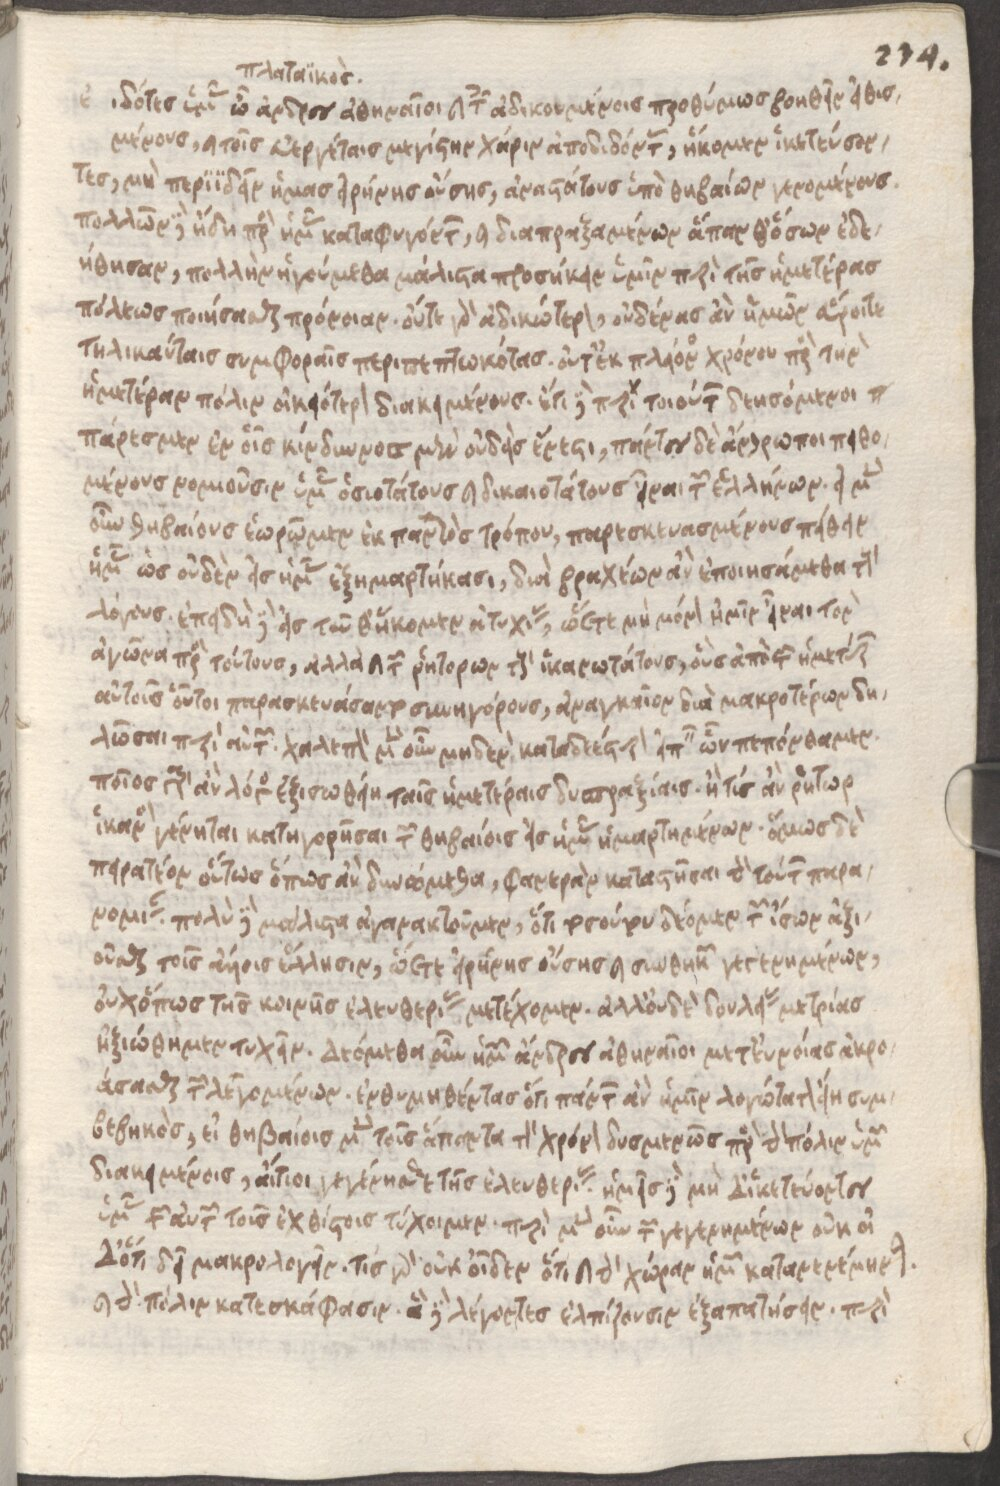 234.
πλαταϊκὸς.
εἰδότες ὑμᾶς ὦ ἄνδρες ἀθηναῖοι καὶ τοῖς ἀδικουμένοις προθύμως βοηθεῖν εἰθισ,
μένους, καὶ τοῖς εὐεργέταις μεγίστην χάριν ἀποδιδόντας, ἥκομεν ἱκετεύσον,
τες, μὴ περιϊδεῖν ἡμᾶς εἰρήνης οὔσης, ἀναστάτους ὑπὸ θηβαίων γενομένους.
πολλῶν δ' ἤδη πρὸς ὑμᾶς καταφυγόντων, καὶ διαπραξαμένων ἅπανθ' ὅσων ἐδε,
ήθησαν, πολλὴν ἡγούμεθα μάλιστα προσήκειν ὑμῖν περὶ τῆς ἡμετέρας
πόλεως ποιήσασθαι πρόνοιαν. οὔτε γὰρ ἀδικώτερον, οὐδένας ἂν ἡμῶν εὕροιτε
τηλικαύταις συμφοραῖς περιπεπτωκότας. οὔτ' ἐκ πλείονος χρόνου πρὸς τὴν
ἡμετέραν πόλιν οἰκειότερον διακειμένους. ἔτι δὲ περὶ τοιούτων δεησόμενοι π
πάρεσμεν ἐν οἷς κίνδυνος μὲν οὐδεὶς ἔνεστι, πάντες δὲ ἄνθρωποι πειθο,
μένους νομιοῦσιν ὑμᾶς ὁσιοτάτους καὶ δικαιοτάτους εἶναι τῶν ἑλλήνων. εἰ μὲν
οὖν θηβαίους ἑωρῶμεν ἐκ παντὸς τρόπου, παρεσκευασμένους πείθειν
ὑμᾶς ὡς οὐδὲν εἰς ἡμᾶς ἐξημαρτήκασι, διὰ βραχέων ἂν ἐποιησάμεθα τοὺς
λόγους. ἐπειδὴ δ' εἰς τοῦθ' ἥκομεν ἀτυχίας, ὥστε μὴ μόνον ἡμῖν εἶναι τὸν
ἀγῶνα πρὸς τούτους, ἀλλὰ καὶ τῶν ῥητόρων τοὺς ἱκανωτάτους, οὓς ἀπὸ τῶν ἡμετέρων
αὑτοῖς οὗτοι παρεσκευάσαντο συνηγόρους, ἀναγκαῖον διὰ μακροτέρων δη,
λῶσαι περὶ αὐτῶν. χαλεπὸν μὲν οὖν μηδὲν καταδεέστερον εἰπεῖν ὧν πεπόνθαμεν.
ποῖος γὰρ ἂν λόγος ἐξισωθείη ταῖς ἡμετέραις δυσπραξίαις. ἢ τίς ἂν ῥήτωρ
ἱκανὸς γένηται κατηγορῆσαι τῶν θηβαίοις εἰς ἡμᾶς ἡμαρτημένων. ὅμως δὲ
πειρατέον οὕτως ὅπως ἂν δυνώμεθα, φανερὰν καταστῆσαι τὴν τούτων παρα,
νομίαν. πολὺ δὲ μάλιστα ἀγανακτοῦμεν, ὅτι τοσούτου δέομεν τῶν ἴσων ἀξι,
οῦσθαι τοῖς ἄλλοις ἕλλησιν, ὥστε εἰρήνης οὔσης καὶ συνθηκῶν γεγενημένων,
οὐχ' ὅπως τῆς κοινῆς ἐλευθερίας μετέχομεν. ἀλλ' οὐδὲ δουλείας μετρίας
ἠξιώθημεν τυχεῖν. Δεόμεθα οὖν ὑμῶν ἄνδρες ἀθηναῖοι μετ' εὐνοίας ἀκρο,
άσασθαι τῶν λεγομένων. ἐνθυμηθέντας ὅτι πάντων ἂν ἡμῖν λογώτατον εἴη συμ,
βεβηκὸς, εἰ θηβαίοις μὲν τοῖς ἅπαντα τὸν χρόνον δυσμενῶς πρὸς τὴν πόλιν ὑμῶν
διακειμένοις, αἴτιοι γεγένησθε τῆς ἐλευθερίας. ἡμεῖς δὲ μὴ δ' ἱκετεύοντες
ὑμᾶς τῶν αὐτῶν τοῖς ἐχθίστοις τύχοιμεν. περὶ μὲν οὖν τῶν γεγενημένων οὐκ οἶ
Δ' ὅτι δεῖ μακρολογεῖν. τίς γὰρ οὐκ οἶδεν ὅτι καὶ τὴν χώραν ἡμῶν κατανενέμηνται.
καὶ τὴν πόλιν κατεσκάφασιν. ἃ δὲ λέγοντες ἐλπίζουσιν ἐξαπατήσειν. περὶ